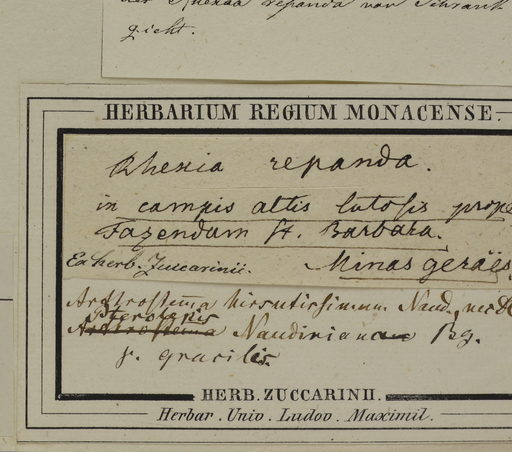 der Rhexia repanda von Schrank
gicht.
HERBARIUM REGIUM MONACENSE.
Rhexia repanda.
in campis altis lutosis prope
Fazendam St. Barbara.
Ex herb. Zuccarinii. Minas geraës
Arthrostema hirsutissimum Naud. nec DC
Pterolepis
Arthrostema Naudiniana Bg.
f. gracilis.
HERB. ZUCCARINII.
Herbar. Univ. Ludov. Maximil.